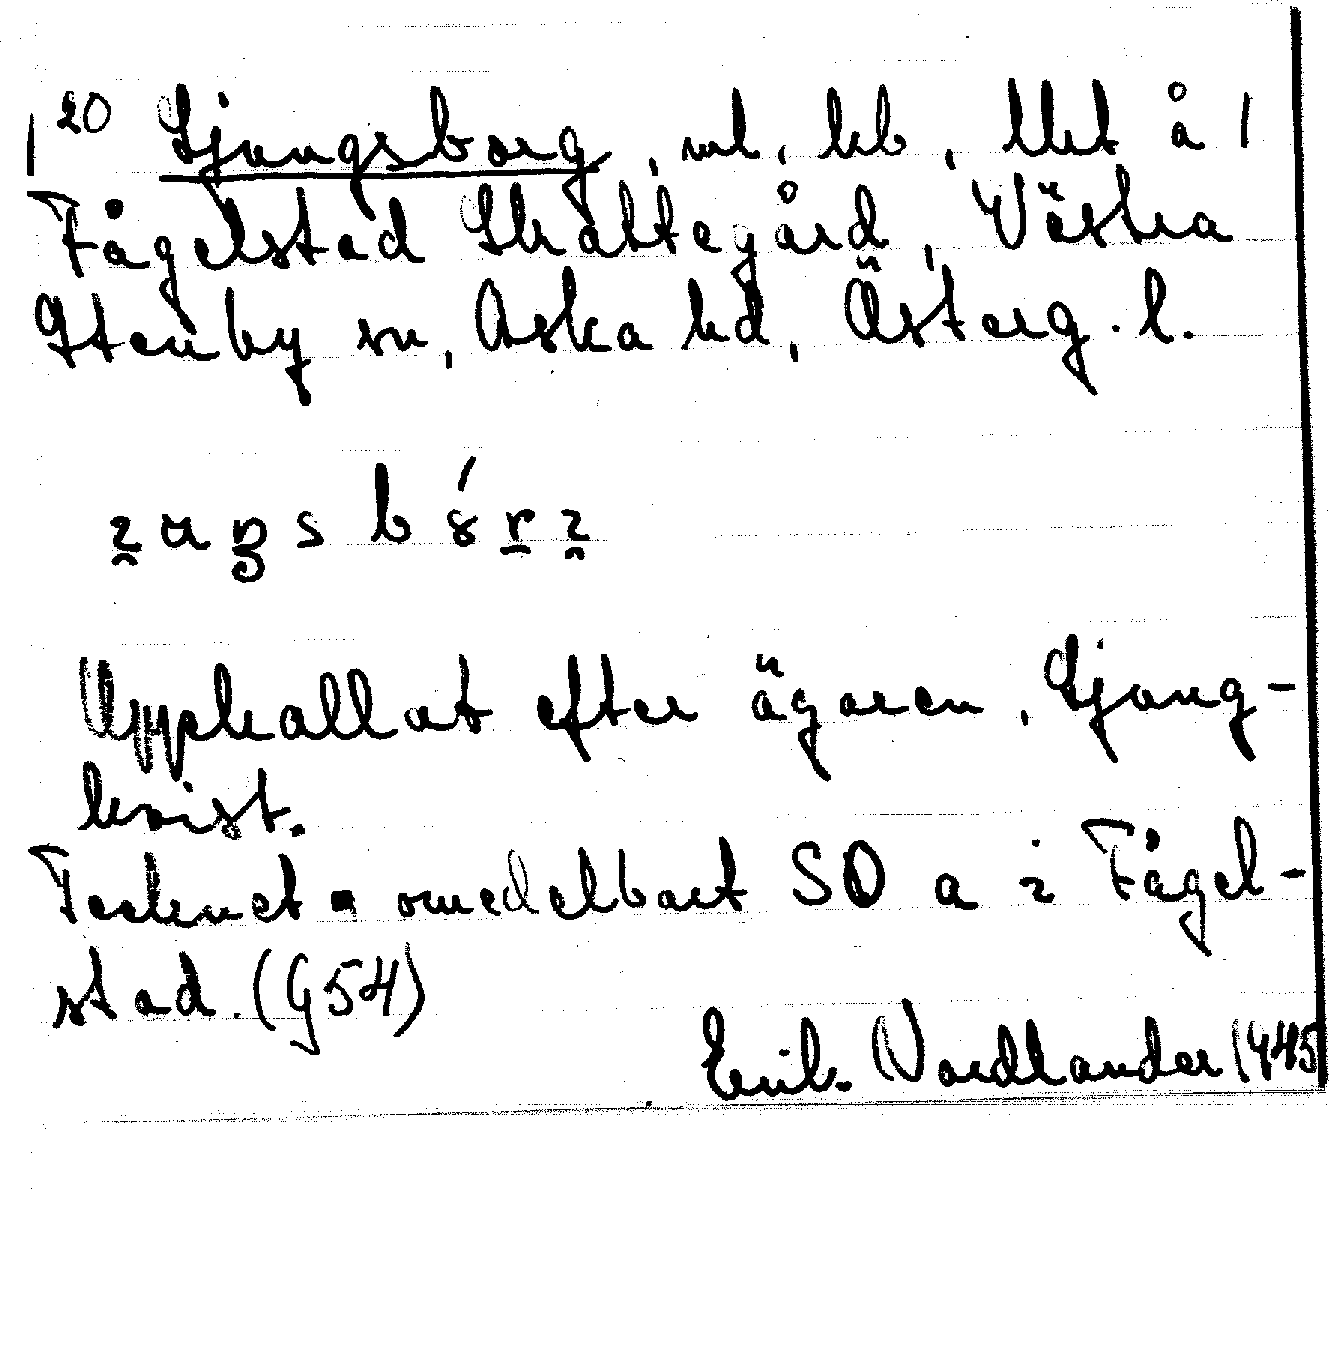 1²⁰ Ljungsborg, ml, kb, llht å 1
Fågelstad Skattegård, Västra
Stenby sn, Aska hd, Österg. l.
Uppkallat efter ägaren, Ljung-
kvist.
Tecknet ▪ omedelbart SO a i Fågel-
stad. (G54)
Erik Nordlander 1945